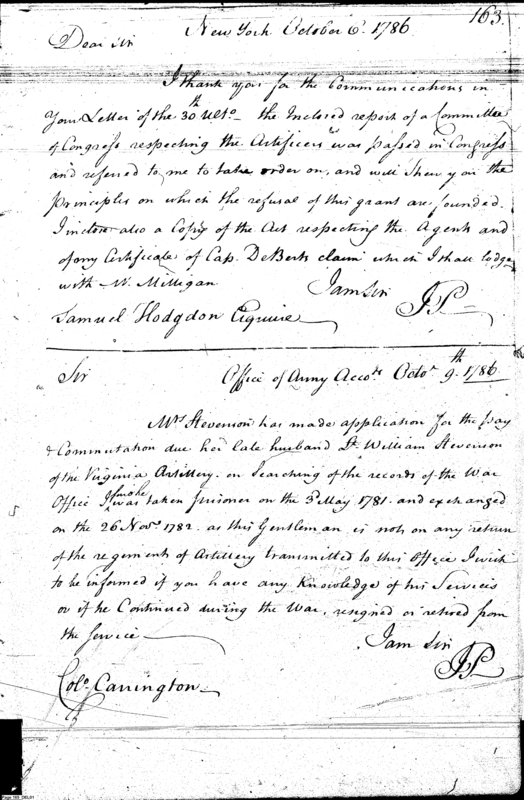 163
New York October 6th. 1786
Dear Sir
I thank you for the Communications in
Your Letter of the 30th Ulto. the Inclosed report of a Committee
of Congress respecting the Artificers was passed in Congress
and referred to me to take order on, and will shew you the
principles on which the refusal of this grant are founded.
I inclose also a Copy of the Act respecting the Agents and
of my Certificate of Cap. DeBerts claim which I shall lodge
with Mr. Milligan
I am Sir
JP.
Samuel Hodgdon Esquire
Office of Army Accots. Octor. 9th. 1786
Sir
Mrs Stevenson has made application for the pay
& Commutation due her late husband Lt. William Stevenson
of the Virginia Artillery. on Searching of the records of the War
Office I find he was taken prisoner on the 3d May 1781. and exchanged
on the 26 Novr. 1782. as this Gentleman is not on any return
of the regiment of Artillery transmitted to this Office I wish
to be informed if you have any Knowledge of his Services
or if he Continued during the War, resigned or retired from
the Service
I am Sir
JP.
Colo. Carrington